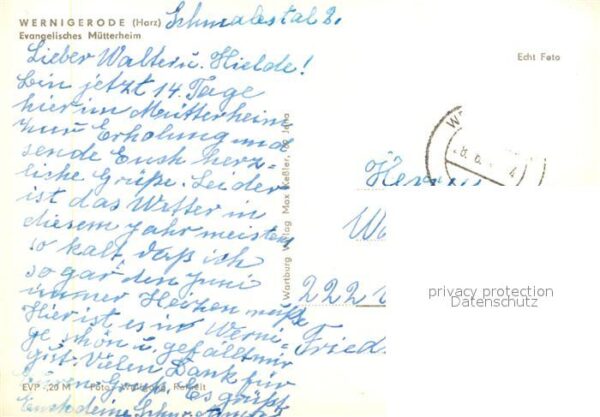 WERNIGERODE (Harz) Schmalestal 2.
Evangelisches Mütterheim
Echt Foto
Lieber Walter u. Hielde!
bin jetzt 14. Tage
hier im Mütterheim
zur Erholung und
sende Euch herz-
liche Grüße. Leider
ist das Wetter in
diesem Jahr meistens
so kalt, daß ich
so gar den Juni
immer Heizen muß
Hier ist es in Werni-
ge schön u. gefällt mir
gut. Vielen Dank für
Es grüßt
Euch deine
Wartburg Verlag Max Keßler, Jena
EVP -.20 M Foto
Herrn
222
Fried
privacy protection
Datenschutz